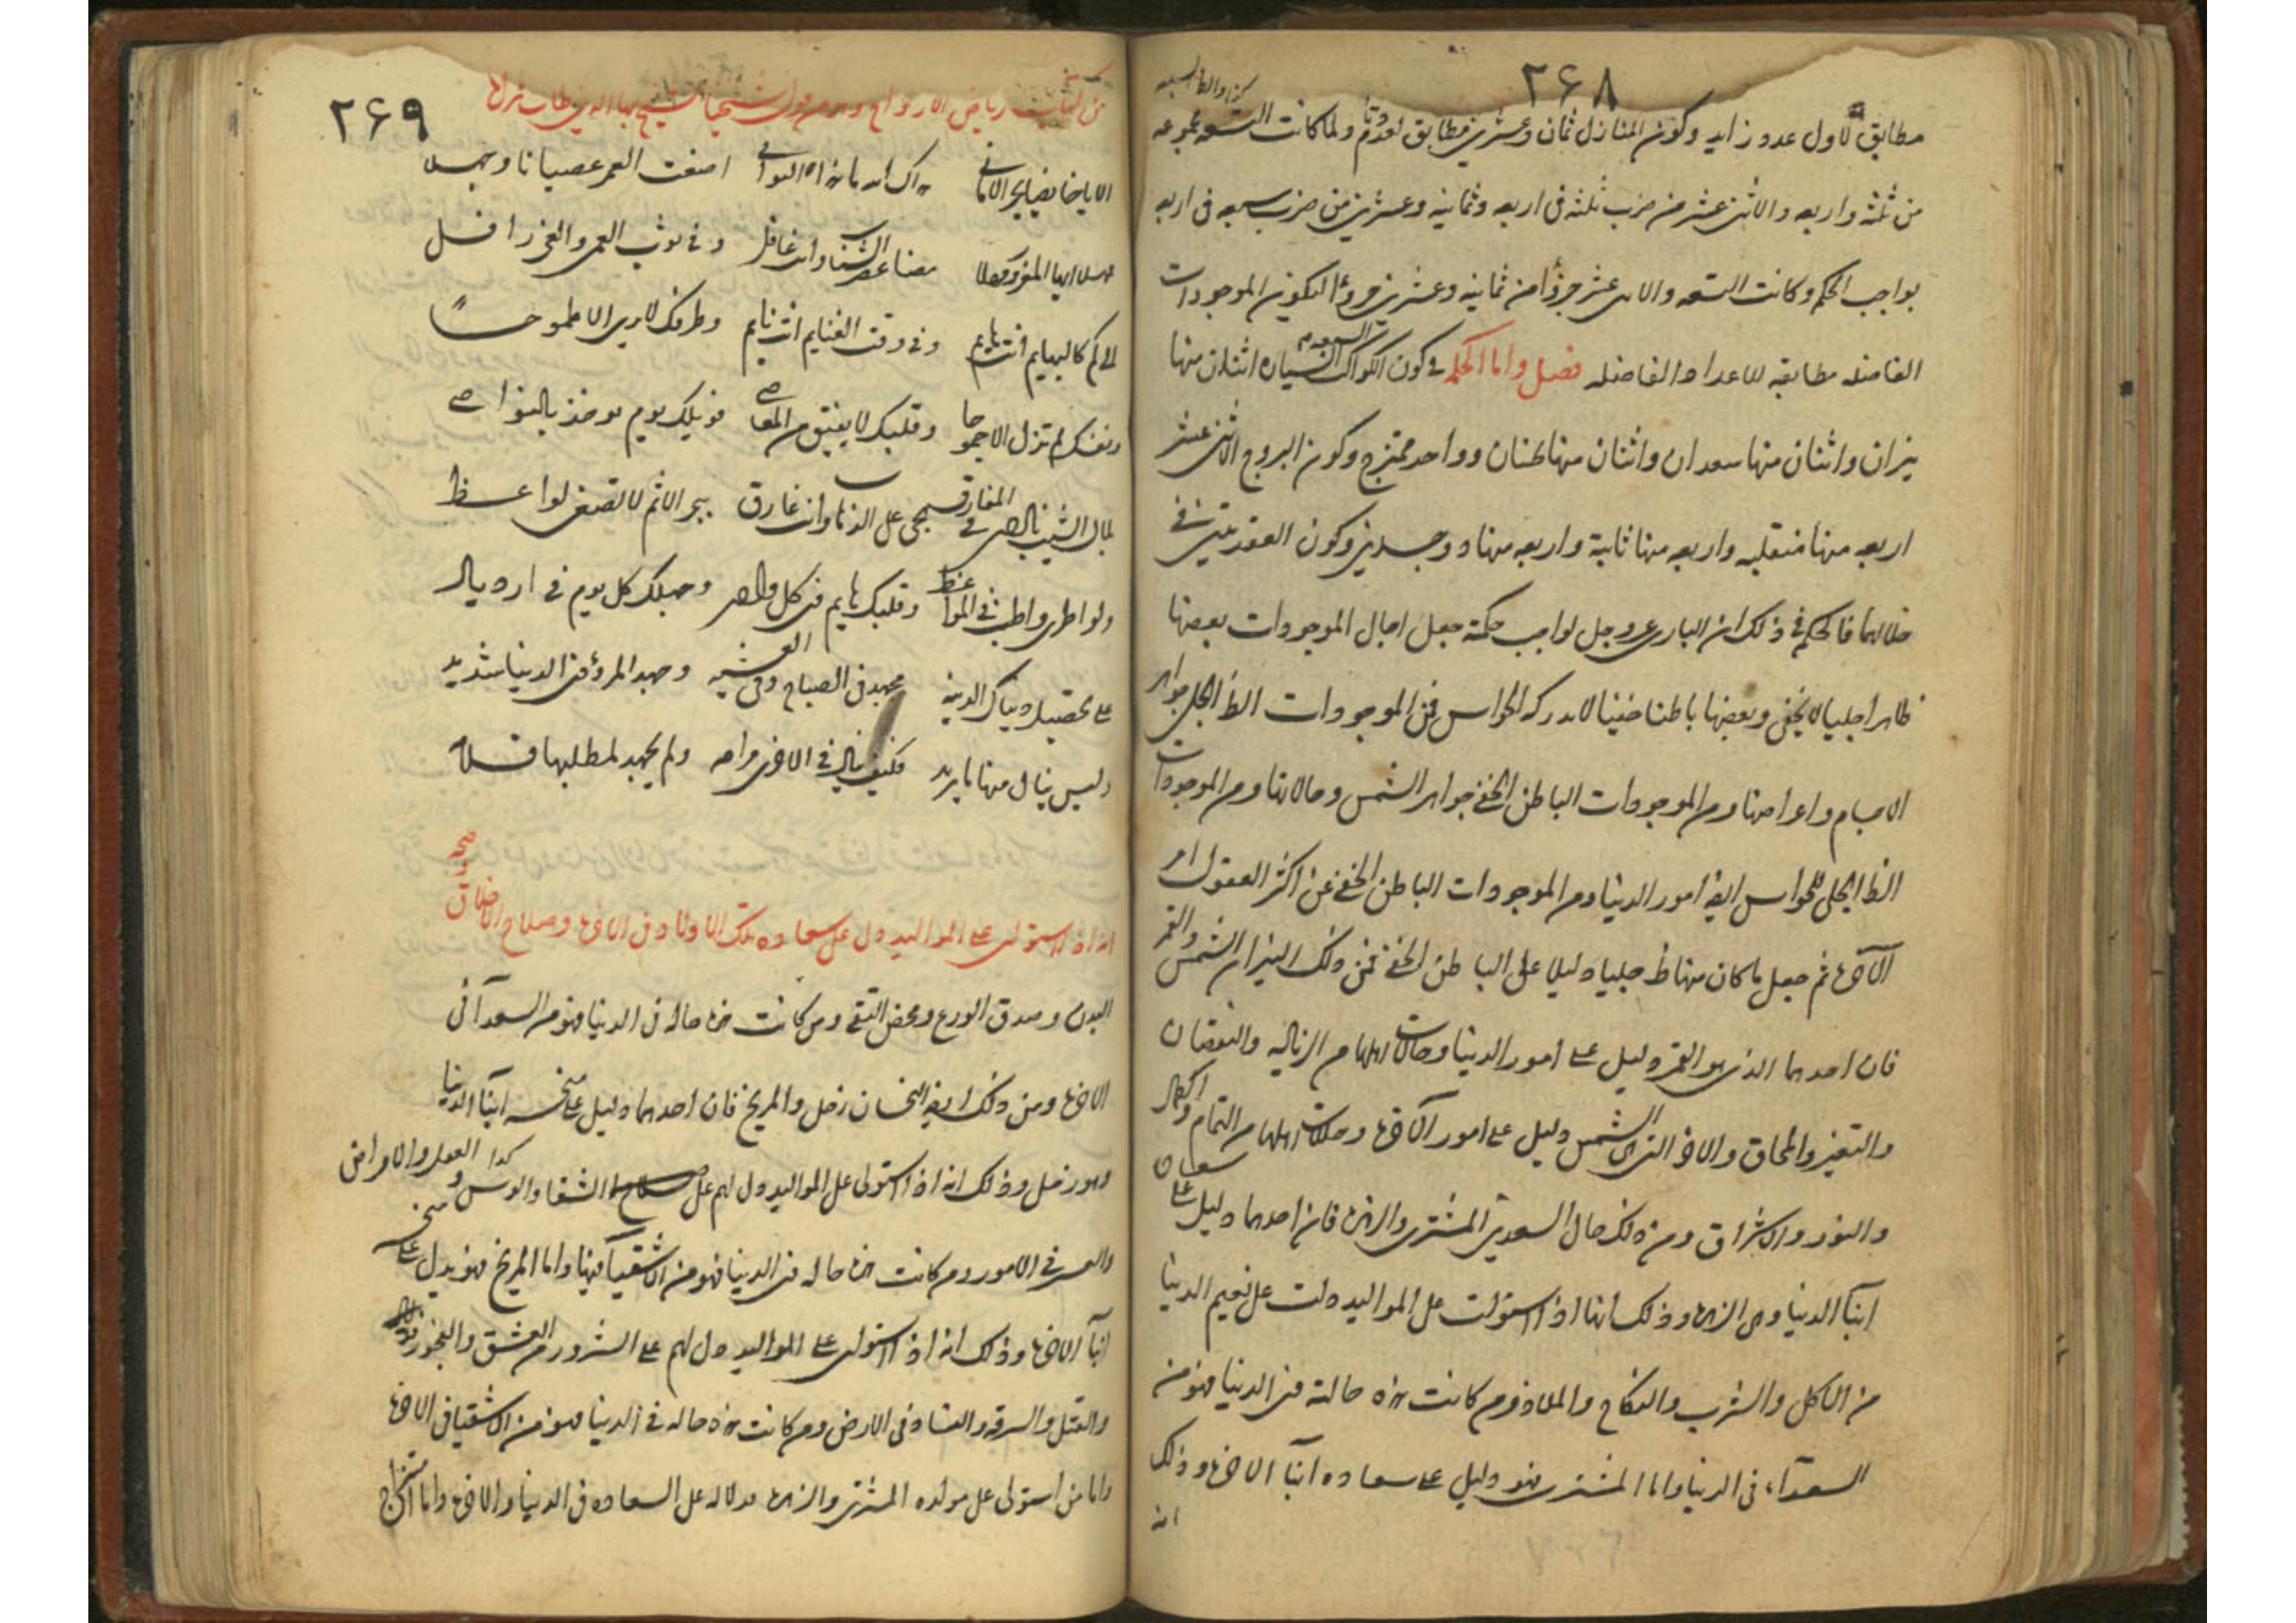 ۲۶۸
مطابق لاول عدد زايد وكون المنازل ثمان وعشرين مطابق لعدد تام ولما كانت السبعه مجموعه
من ثلثه واربعه والاثنى عشر من ضرب ثلثه فى اربعه وثمانيه وعشرين من ضرب سبعه فى اربعه
بواجب الحكم وكانت السبعه والاثنى عشر جزؤا من ثمانيه وعشرين جزؤا ليكون الموجودات
الفاضله مطابقه للاعداد الفاضله فصل واما الحكمه فى كون الكواكب السياره اثنان منها
نيران واثنان منها سعدان واثنان منها نحسان وواحد ممتزج وكون البروج الاثنى عشر
اربعه منها منقلبه واربعه منها ثابتة واربعه منها ذو جسدين وكون العقدتين فى
خلالها فالحكم فى ذلك ان البارى عزوجل لواجب حكمته جعل احوال الموجودات بعضها
ظاهرا جليا لا يخفى وبعضها باطنا خفيا لا يدركه الحواس فمن الموجودات الظ الجلى جواهر
الاجسام واعراضها ومن الموجودات الباطن الخفى جواهر النفس وحالاتها ومن الموجودات
الظ الجلى للحواس ايضا امور الدنيا ومن الموجودات الباطن الخفى عن اكثر العقول امر
الآخره ثم جعل ما كان منها ظ جليا دليلا على الباطن الخفى فمن ذلك النيران الشمس والقمر
فان احدهما الذى هو القمر دليل على امور الدنيا وحالات اهلها من الزياده والنقصان
والتغير والمحاق والاخر التى هى الشمس دليل على امور الآخره وحالات اهلها من التمام والكمال
والنور والاشراق ومن ذلك حال السعدين المشترى والزهره فان احدهما دليل على سعادة
ابنآ الدنيا وهى الزهره وذلك انها اذا استولت على المواليد دلت على نعيم الدنيا
من الاكل والشرب والنكاح والملاذ ومن كانت هذه حالته فى الدنيا فهو من
السعدآء فى الدنيا واما المشترى فهو دليل على سعاده ابنآ الاخره وذلك
انه
۲۶۹
من كتاب رياض الارواح وهو من قول شيخنا الشيخ بهاالدين طاب ثراه
الا يا خائضا بحر الامانى هداك الله ما هذا التوانى اضعت العمر عصيانا وجهلا
مهلا ايها المغرور مهلا مضا عصر الشباب وانت غافل وفى ثوب العمى والغى رافل
الى كم كالبهايم انت هايم وفى وقت الغنايم انت نايم وطرفك لا يرى الا طموحا
ونفسك لم تزل الا جموحا وقلبك لا يفيق من المعاصى فويلك يوم يوخذ بالنواصى
بلال الشيب نادى فى المفارق بحى على الذهاب وانت غارق ببحر الاثم لا تصغى لواعظ
ولو اطرى واطنب فى المواعظ وقلبك هايم فى كل واد وجهلك كل يوم فى ازدياد
على تحصيل دنياك الدنيه مجهد فى الصباح وفى العشيه وجهد المرؤ فى الدنيا شديد
وليس ينال منها ما يريد فكيف ينال فى الاخرى مرامه ولم يجهد لمطلبها قلامه
انه اذا استولى على المواليد دل على سعاده تلك الاولاد فى الاخره وصلاح الاخلاق وصحه
البدن وصدق الورع ومحض التقى ومن كانت هذه حاله فى الدنيا فهو من السعدآ فى
الاخره ومن ذلك ايضا النحسان زحل والمريخ فان احدهما دليل على منحسه ابنآ الدنيا
وهو زحل وذلك انه اذا استولى على المواليد دل لهم على الشقا والبوس و كدا العمل والامراض
والعسر فى الامور ومن كانت هذه حاله فى الدنيا فهو من الاشقيآ فيها واما المريخ فهو يدل على منحسه
ابنآ الاخره وذلك انه اذا استولى على المواليد دل لهم على الشرور من العشق والفجور
والقتل والسرقه والفساد فى الارض ومن كانت هذه حاله فى الدنيا فهو من الاشقيا فى الاخره
واما من استولى على مولده المشترى والزهره دلاله على السعاده فى الدنيا والاخره واما امتزاج